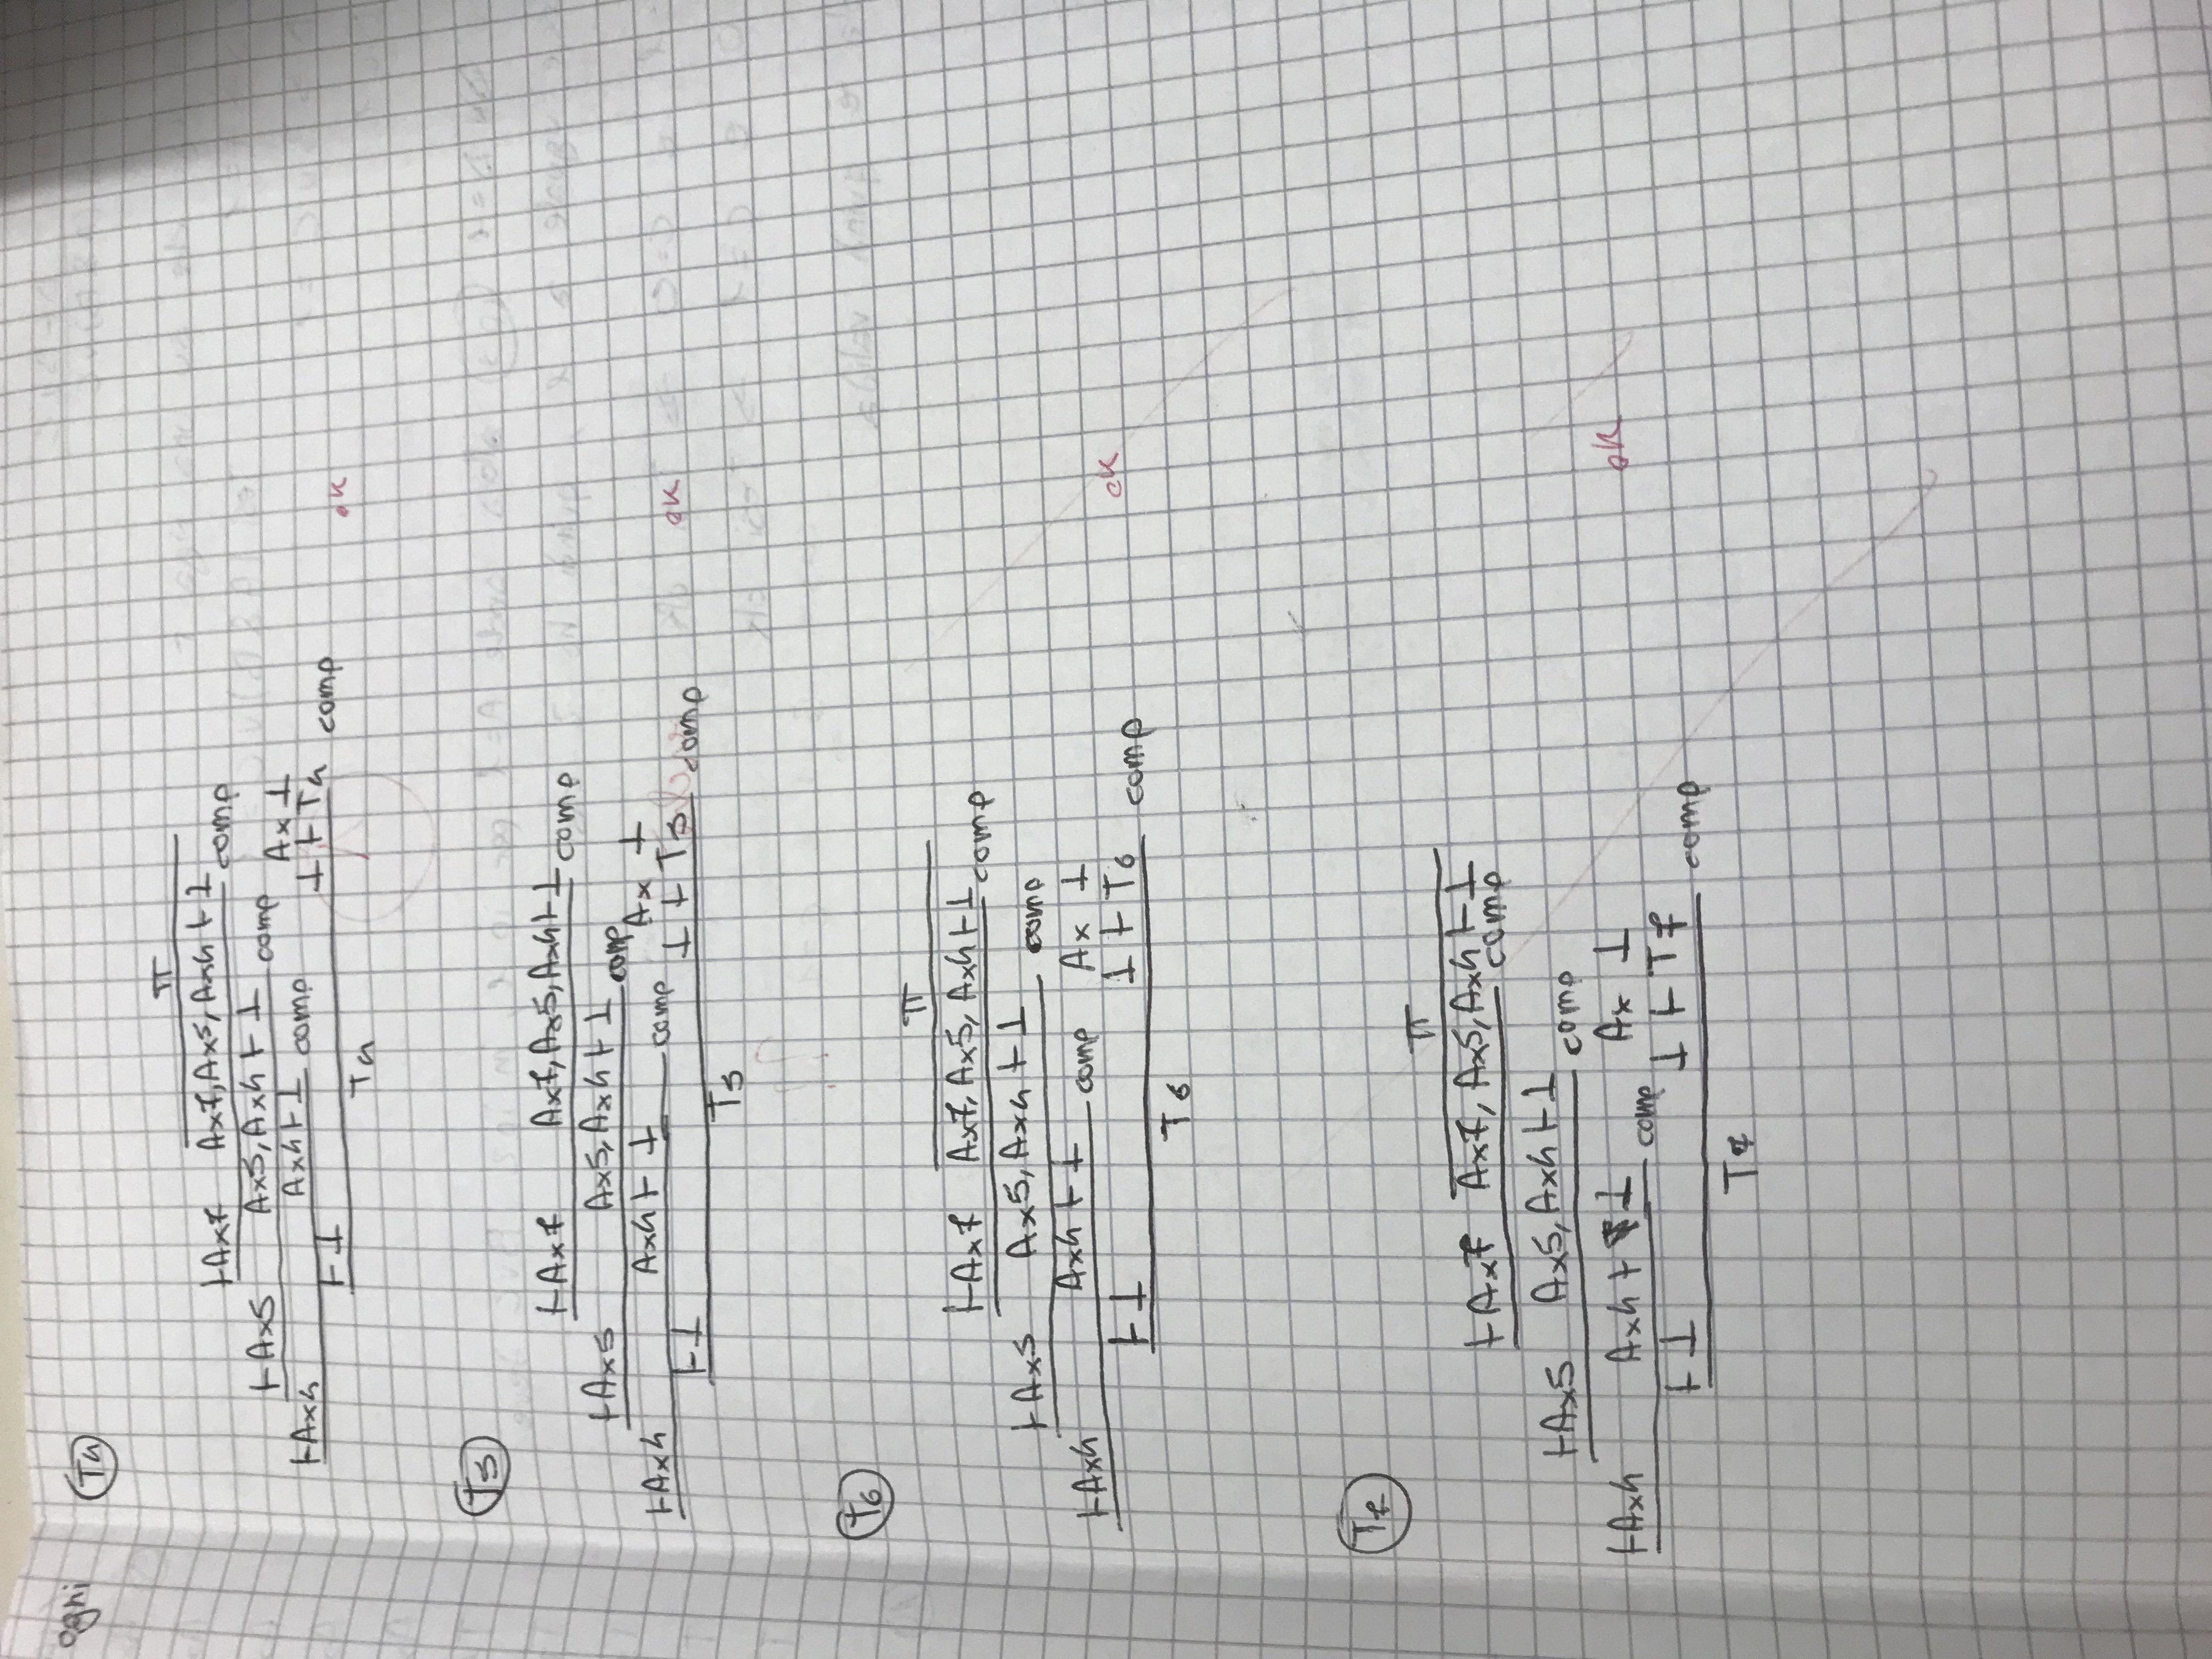 ogni
T4
π
⊢Ax7 Ax7, Ax5, Ax4 ⊢ ⊥ comp
⊢Ax5 Ax5, Ax4 ⊢ ⊥ comp Ax ⊥
⊢Ax4 Ax4 ⊢ ⊥ comp ⊥ ⊢ T4
⊢ ⊥ comp
T4
ok
T5
⊢Ax7 Ax7, Ax5, Ax4 ⊢ ⊥ comp
⊢Ax5 Ax5, Ax4 ⊢ ⊥ comp Ax ⊥
⊢Ax4 Ax4 ⊢ ⊥ comp ⊥ ⊢ T5
⊢ ⊥ comp
T5
ok
T6
π
⊢Ax7 Ax7, Ax5, Ax4 ⊢ ⊥ comp
⊢Ax5 Ax5, Ax4 ⊢ ⊥ comp
⊢Ax4 Ax4 ⊢ ⊥ comp Ax ⊥
⊢ ⊥ ⊥ ⊢ T6 comp
T6
ok
T7
π
⊢Ax7 Ax7, Ax5, Ax4 ⊢ ⊥ comp
⊢Ax5 Ax5, Ax4 ⊢ ⊥ comp
⊢Ax4 Ax4 ⊢ ⊥ comp Ax ⊥
⊢ ⊥ ⊥ ⊢ T7 comp
T7
ok